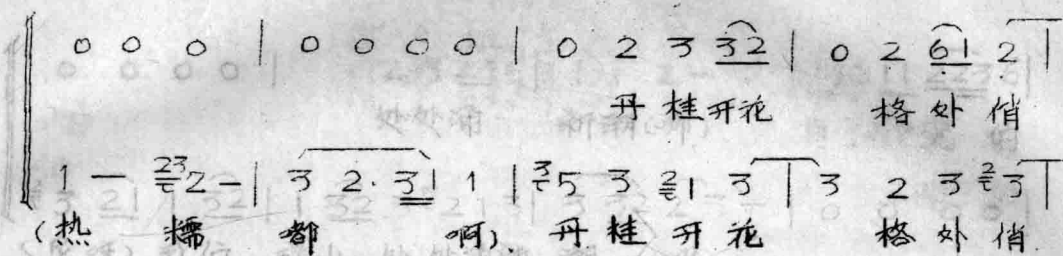 0 0 0 | 0 0 0 0 | 0 2 3 32 | 0 2 61 2 |
丹桂开花 格处俏
1 — 23 2 – | 3 2. 31 1 | 3 5 3 2 1 3 | 3 2 3 2 3 |
(热 糯 都 啊). 丹桂开花 格处俏